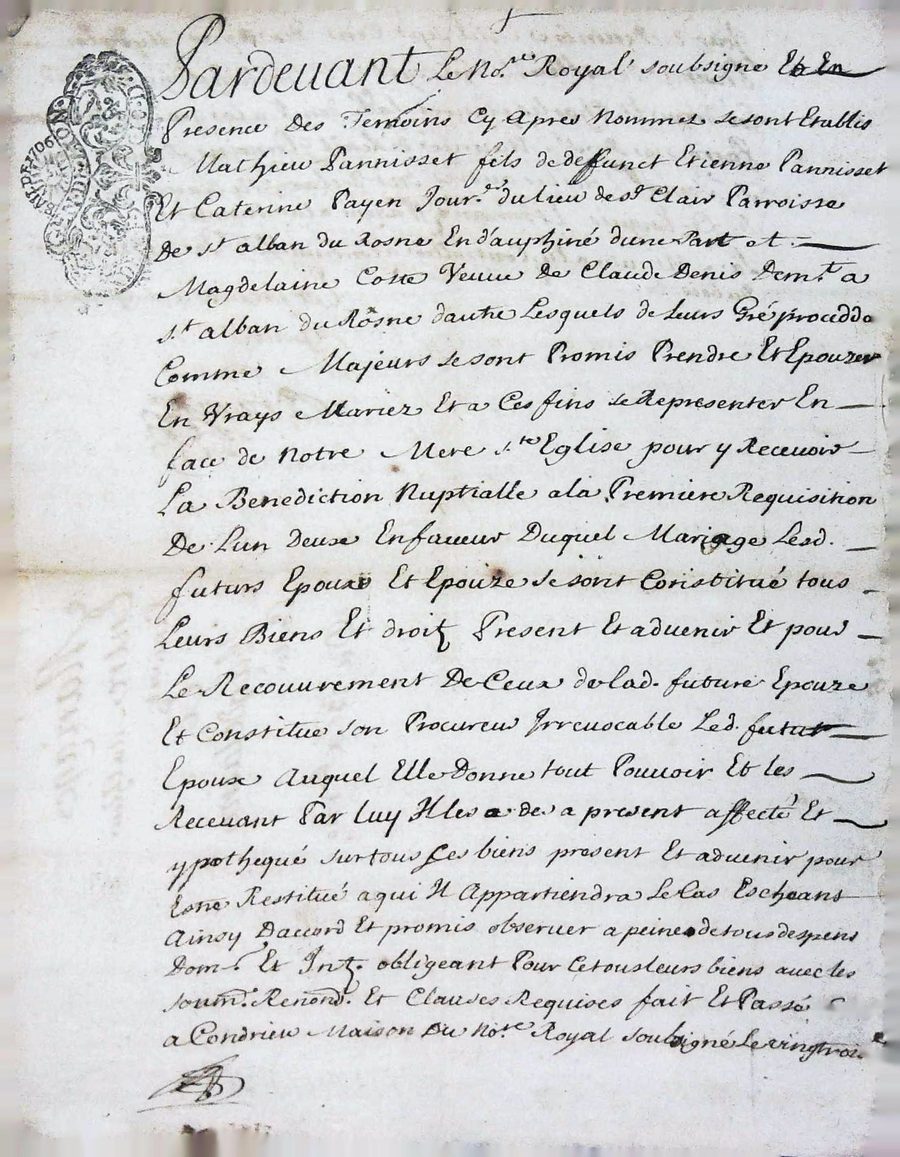 Pardevant Le No.re Royal soubsigné Et En
Presence Des Temoins Cy Apres Nommez se sont Etablis
Mathieu Pannisset fils de deffunct Etienne Pannisset
Et Caterine Payen Jour.er du lieu de s.t Clair Parroisse
De s.t alban du Rosne En d'auphiné dune Part et
Magdelaine Coste Veuve De Claude Denis Dem.t a
s.t alban du Rosne dautre Lesquels de Leurs Gré procedd.
Comme Majeurs se sont Promis Prendre Et Epouzer
En Vrays Mariez Et a Ces fins se Representer En
face de Notre Mere s.te Eglise pour y Recevoir
La Benediction Nuptialle a la Premiere Requisition
De Lun Deux En faveur Duquel Mariage Lesd.
futurs Epoux Et Epouze se sont Constitué tous
Leurs Biens Et droitz Present Et advenir Et pour
Le Recouvrement De Ceux de lad. future Epouze
Et Constitue son Procureur Irrevocable Led. futur
Epoux Auquel Elle Donne tout Pouvoir Et les
Recevant Par luy Il les a des a present affecté Et
ypothequé sur tous ses biens present Et advenir pour
Estre Restitué a qui Il Appartiendra Le Cas Escheant
Ainsy Daccord Et promis observer a peine de tous despens
Dom. Et Intz. obligeant Pour Ce tous leurs biens avec les
soum. Renon. Et Clauses Requises fait Et Passé
a Condrieu Maison Du No.re Royal soubsigné Le vingtrois
DE 1706